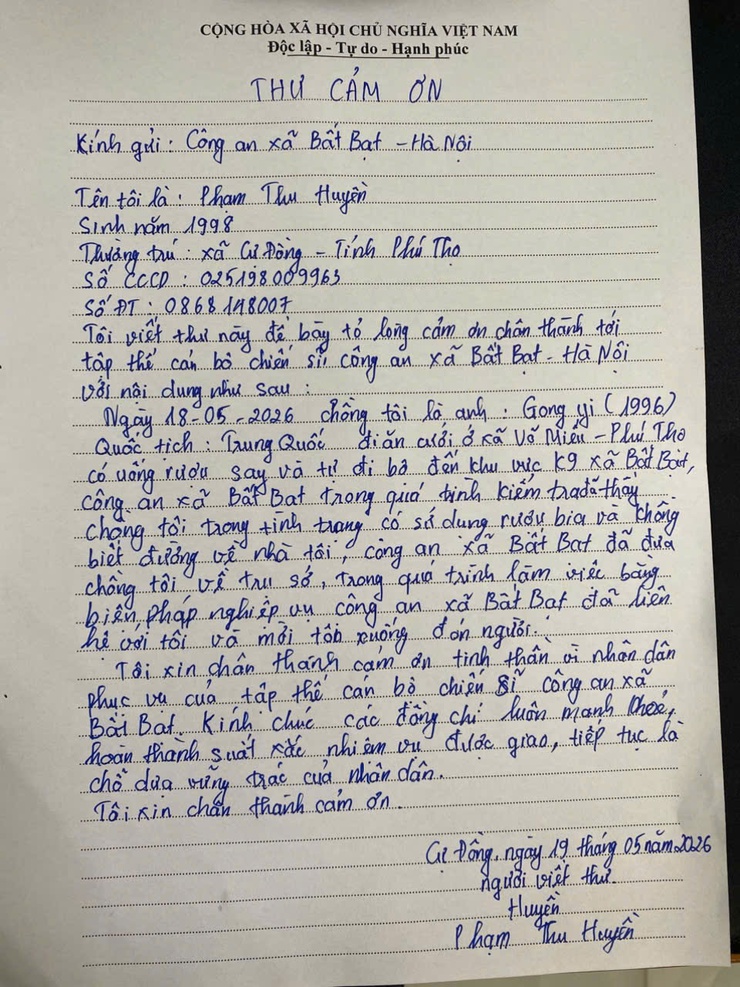 CỘNG HÒA XÃ HỘI CHỦ NGHĨA VIỆT NAM
Độc lập - Tự do - Hạnh phúc
THƯ CẢM ƠN
Kính gửi : Công an xã Bất Bạt - Hà Nội
Tên tôi là : Phạm Thu Huyền
Sinh năm 1998
Thường trú : xã Cự Đồng - Tỉnh Phú Thọ
Số CCCD : 025198009963
Số ĐT : 0868148007
Tôi viết thư này để bày tỏ lòng cảm ơn chân thành tới
tập thể cán bộ chiến sĩ công an xã Bất Bạt - Hà Nội
với nội dung như sau :
Ngày 18-05-2026 chồng tôi là anh : Gong yi (1996)
Quốc tịch : Trung Quốc đi ăn cưới ở xã Võ Miếu - Phú Thọ
có uống rượu say và tự đi bộ đến khu vực K9 xã Bất Bạt,
công an xã Bất Bạt trong quá trình kiểm tra đã thấy
chồng tôi trong tình trạng có sử dụng rượu bia và không
biết đường về nhà tôi, công an xã Bất Bạt đã đưa
chồng tôi về trụ sở, trong quá trình làm việc bằng
biện pháp nghiệp vụ công an xã Bất Bạt đã liên
hệ với tôi và mời tôi xuống đón người.
Tôi xin chân thành cảm ơn tinh thần vì nhân dân
phục vụ của tập thể cán bộ chiến sĩ công an xã
Bất Bạt. Kính chúc các đồng chí luôn mạnh khoẻ,
hoàn thành suất xắc nhiệm vụ được giao, tiếp tục là
chỗ dựa vững trắc của nhân dân.
Tôi xin chân thành cảm ơn.
Cự Đồng, ngày 19 tháng 05 năm 2026
người viết thư
Huyền
Phạm Thu Huyền